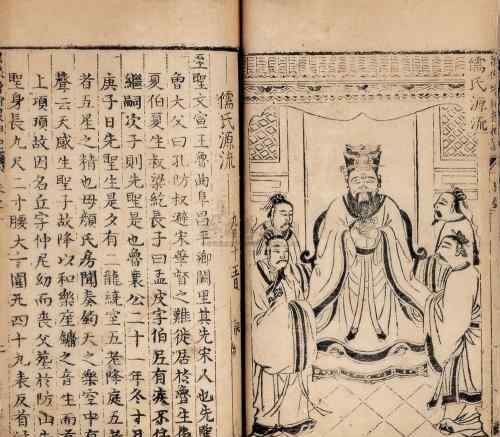 儒氏源流
儒氏源流
至聖文宣王魯曲阜昌平鄉闕里其先宋人也先聖
魯大父曰孔防叔避宋華督之難徙居於魯生伯
夏伯夏生叔梁紇長子曰孟皮字伯尼有疾不任
繼嗣次子則先聖是也魯襄公二十一年冬十月
庚子日先聖生是夕有二龍繞室五老降庭五老
者五星之精也母顏氏房聞奏鈞天之樂室中有
聲云天感生聖子故降以和樂鏞之音生而首
上項故因名丘字仲尼幼而喪父墓於防山
聖身長九尺二寸腰大十圍凡四十九表反首